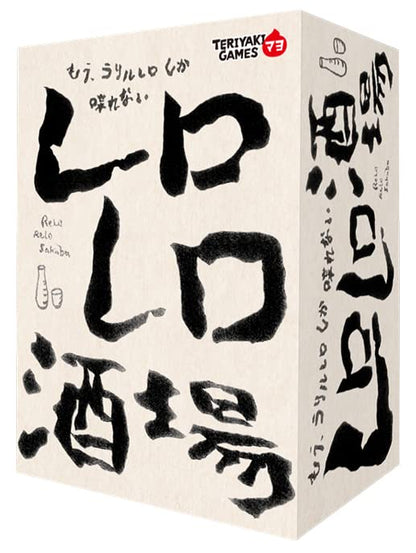 TERIYAKI GAMES マヨ
もう、ラリルレロしか
喋れない
レロ
レロ
Relo
Relo
Sakaba
酒場
レロレロ酒場
Relo
Relo
Sakaba
もう、ラリルレロしか喋れない